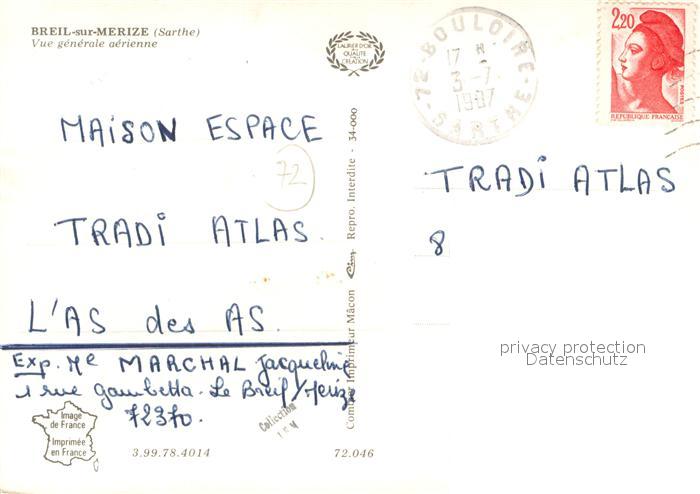 BREIL-sur-MERIZE (Sarthe)
Vue générale aérienne
LAURIER D'OR
DE LA
QUALITÉ
DE LA
CRÉATION
72-BOULOIRE
17 H
3-7
1987
SARTHE
2,20
POSTES
REPUBLIQUE FRANÇAISE
MAISON ESPACE
72
TRADI ATLAS.
L'AS des AS.
Exp. Me MARCHAL Jacqueline
1 rue gambetta. Le Breil/Merize
72370.
Image
de France
Imprimée
en France
3.99.78.4014
72.046
Collection
Combier Imprimeur Mâcon Cim Repro. Interdite - 34-000
TRADI ATLAS
8
privacy protection
Datenschutz